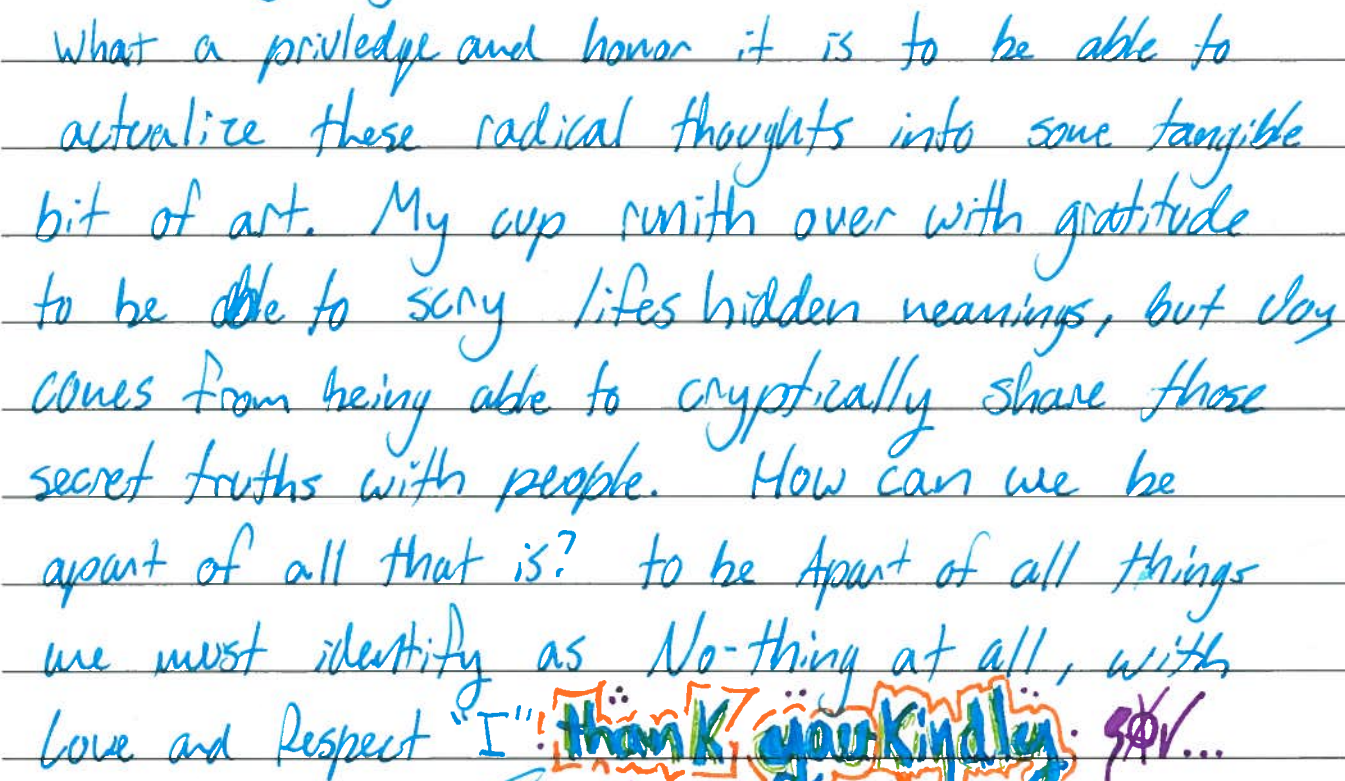 What a privledge and honor it is to be able to
actualize these radical thoughts into some tangible
bit of art. My cup runith over with gratitude
to be able to scry lifes hidden meanings, but Joy
comes from being able to cryptically share those
secret truths with people. How can we be
apart of all that is? to be Apart of all things
we must identify as No-thing at all, with
Love and Respect "I" thank you Kindly.